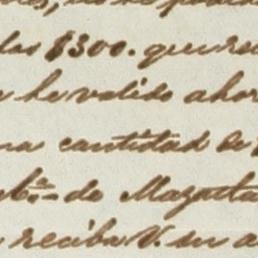 los $300. que re
he valido ahor
na cantidad de
de Mazatla
reciba V. su a